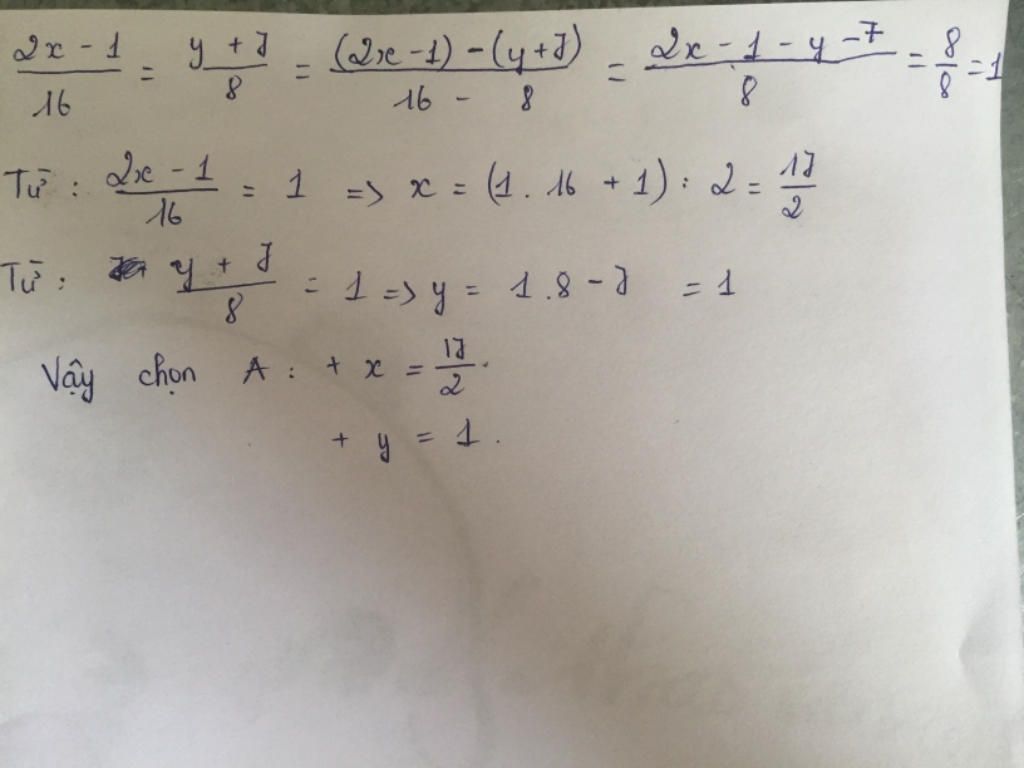 (2x - 1)/16 = (y + 7)/8 = ((2x - 1) - (y + 7))/(16 - 8) = (2x - 1 - y - 7)/8 = 8/8 = 1
Từ : (2x - 1)/16 = 1 => x = (1 . 16 + 1) : 2 = 17/2
Từ : (y + 7)/8 = 1 => y = 1 . 8 - 7 = 1
Vậy chọn A : + x = 17/2 .
+ y = 1 .